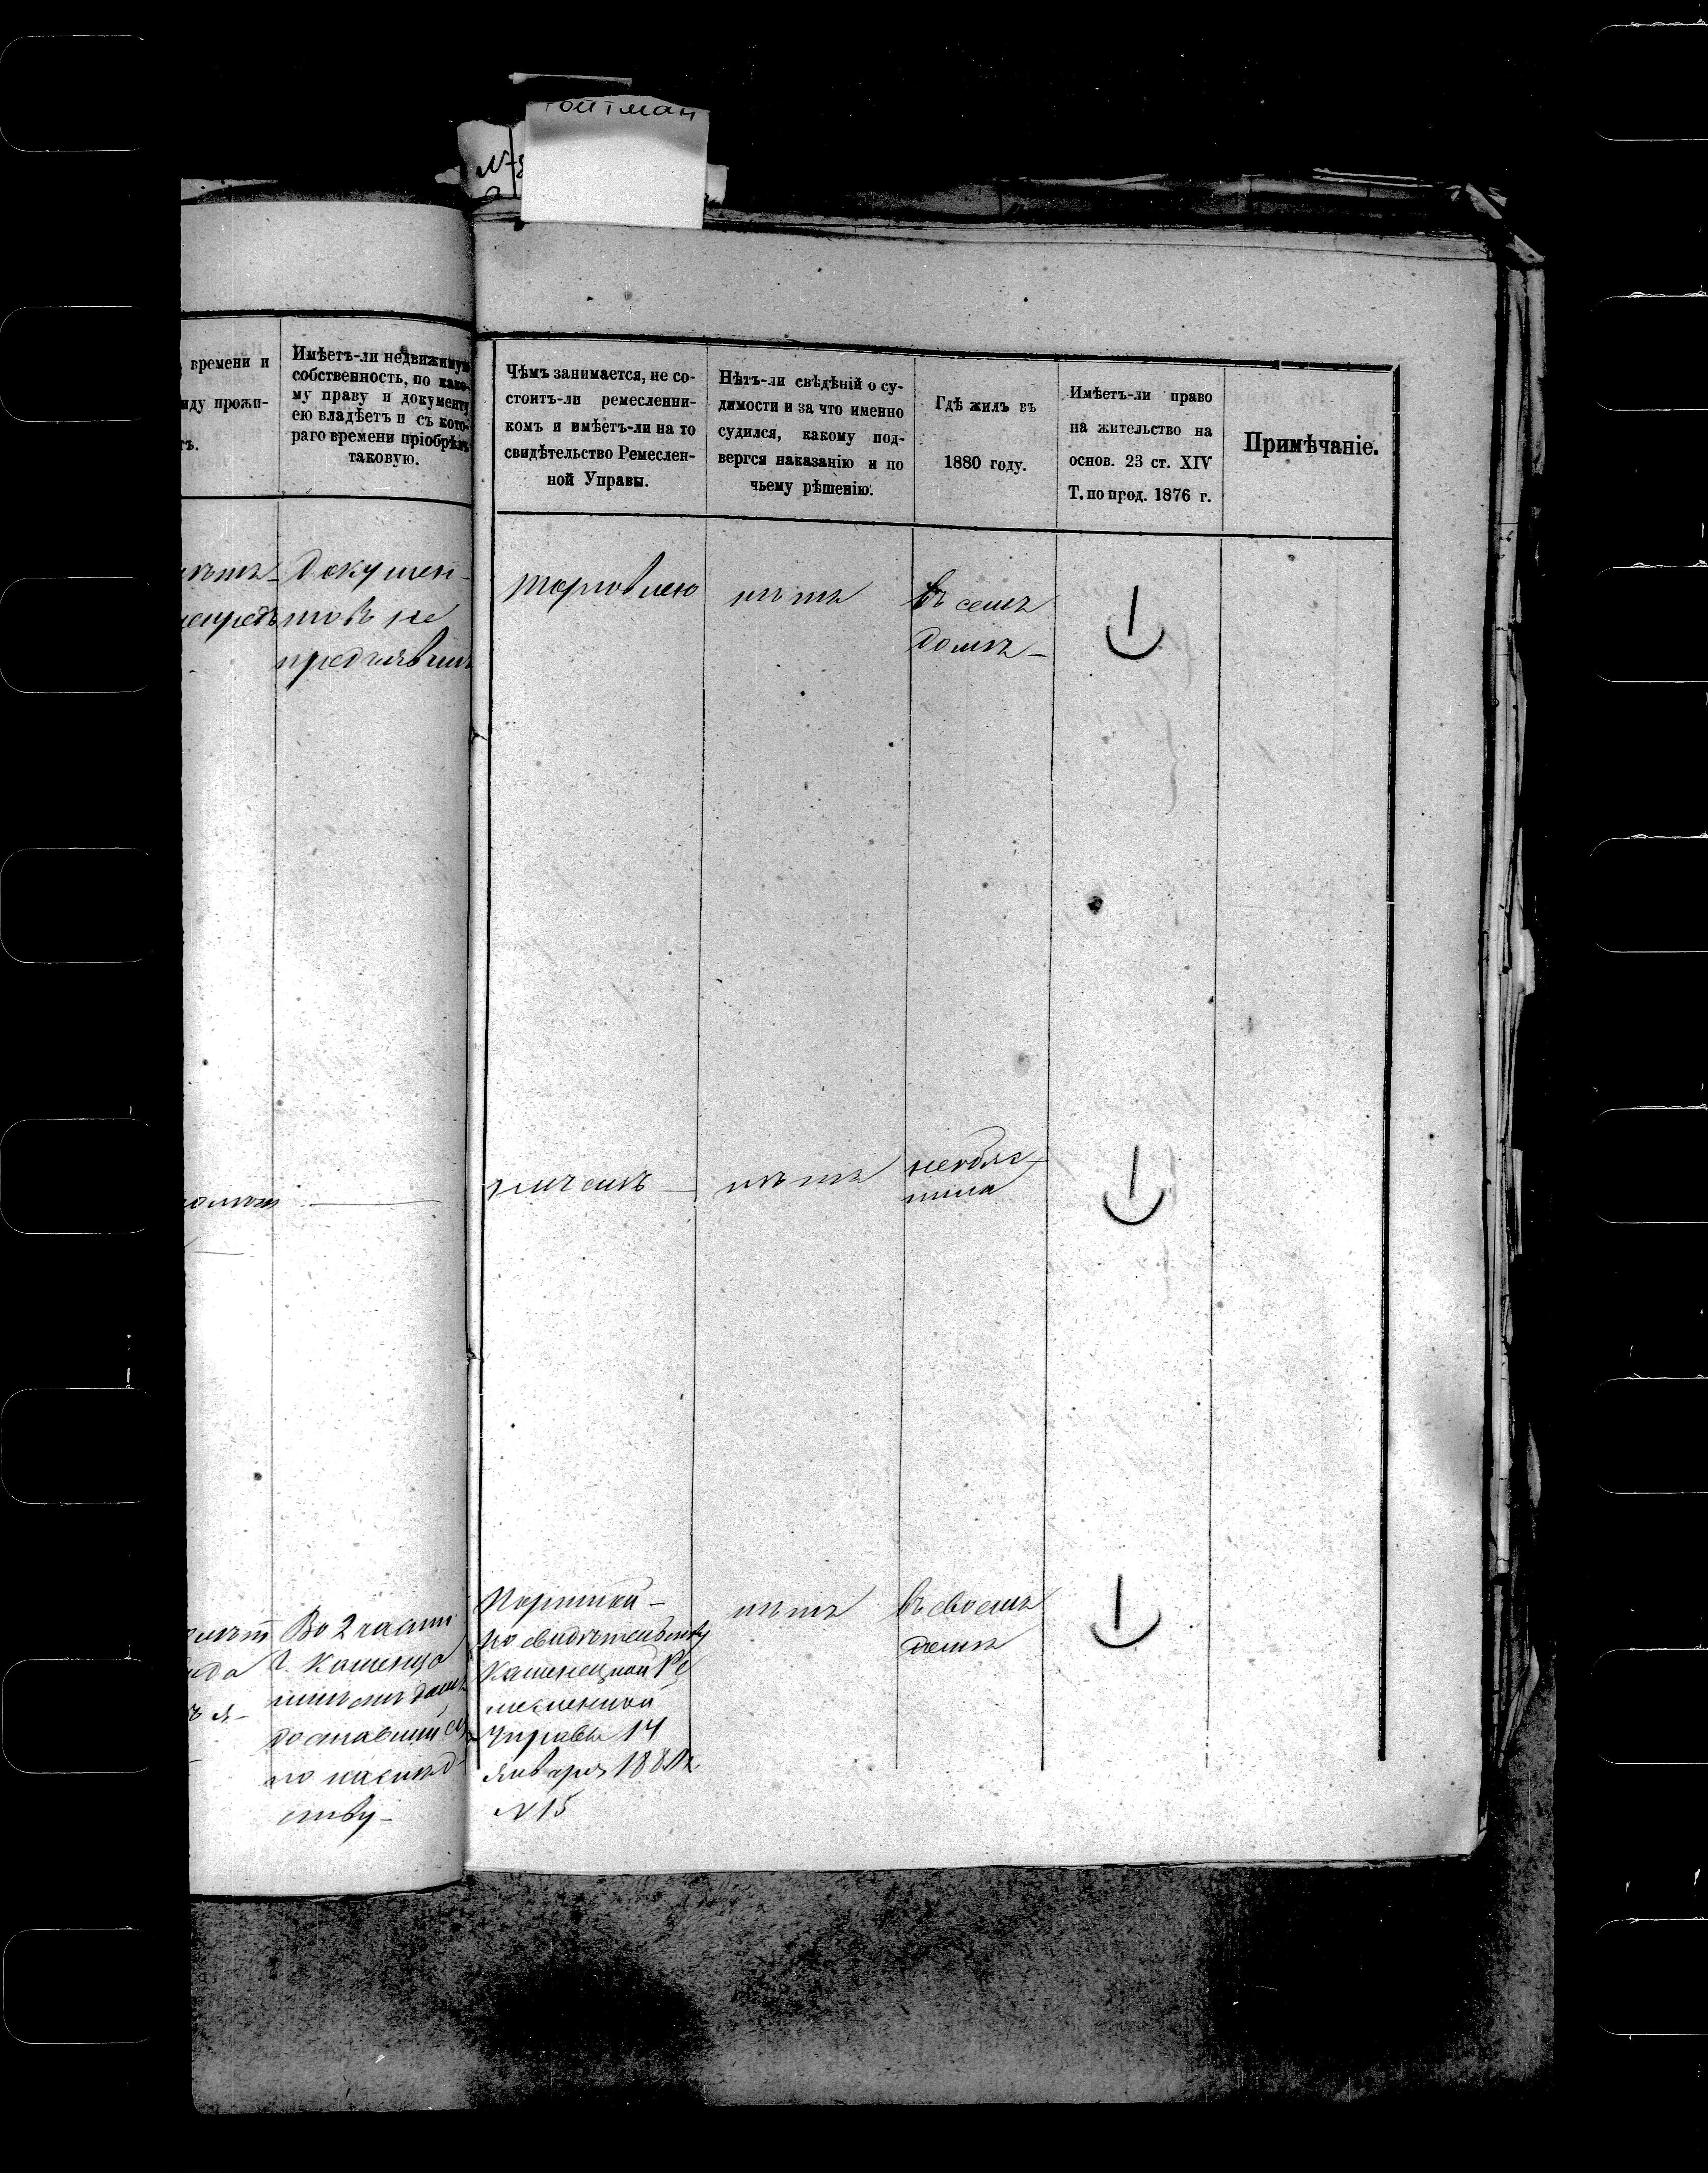 ойтман
№
времени и
иду прожи-
ъ.
Имѣетъ-ли недвижимую
собственность, по како-
му праву и документу
ею владѣетъ и съ кото-
раго времени пріобрѣлъ
таковую.
Чѣмъ занимается, не со-
стоитъ-ли ремесленни-
комъ и имѣетъ-ли на то
свидѣтельство Ремеслен-
ной Управы.
Нѣтъ-ли свѣдѣній о су-
димости и за что именно
судился, какому под-
вергся наказанію и по
чьему рѣшенію.
Гдѣ жилъ въ
1880 году.
Имѣетъ-ли право
на жительство на
основ. 23 ст. XIV
Т. по прод. 1876 г.
Примѣчаніе.
Докумен-
товъ не
предъявилъ
торговлею
нѣтъ
въ семъ
домѣ
ничемъ
нѣтъ
Во 2 части
г. Каменца
имѣетъ домъ
доставшійся
по наслѣд
ству
Портной
по свидѣтельству
Каменецкой Ре
месленной
Управы 14
Января 188
№ 15
нѣтъ
въ своемъ
домѣ